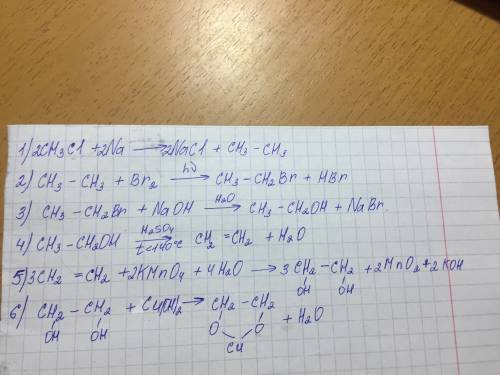 1) 2CH3Cl + 2Na → 2NaCl + CH3 - CH3
2) CH3 - CH3 + Br2 →hν CH3 - CH2Br + HBr
3) CH3 - CH2Br + NaOH →H2O CH3 - CH2OH + NaBr.
4) CH3 - CH2OH →H2SO4 t<140°C CH2 = CH2 + H2O
5) 3CH2 = CH2 + 2KMnO4 + 4H2O → 3CH2 - CH2 + 2MnO2 + 2KOH
OH OH
6) CH2 - CH2 + Cu(OH)2 → CH2 - CH2 + H2O
OH OH O O
Cu